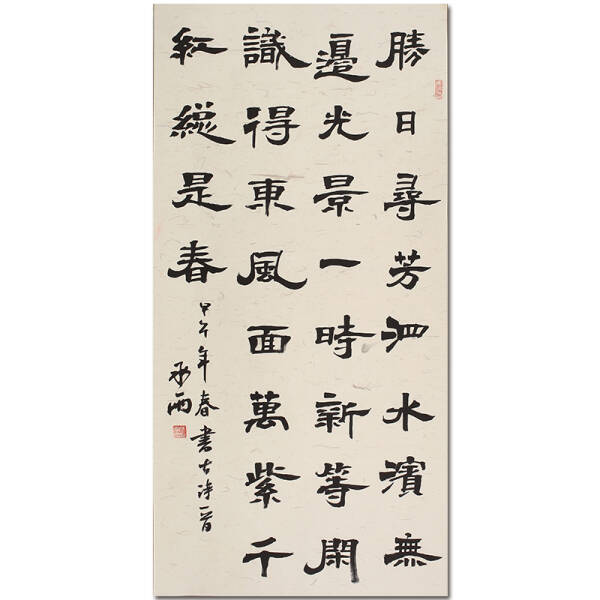 勝日尋芳泗水濱無
邉光景一時新等閑
識得東風面萬紫千
紅總是春
甲午年春書古詩一首
承雨